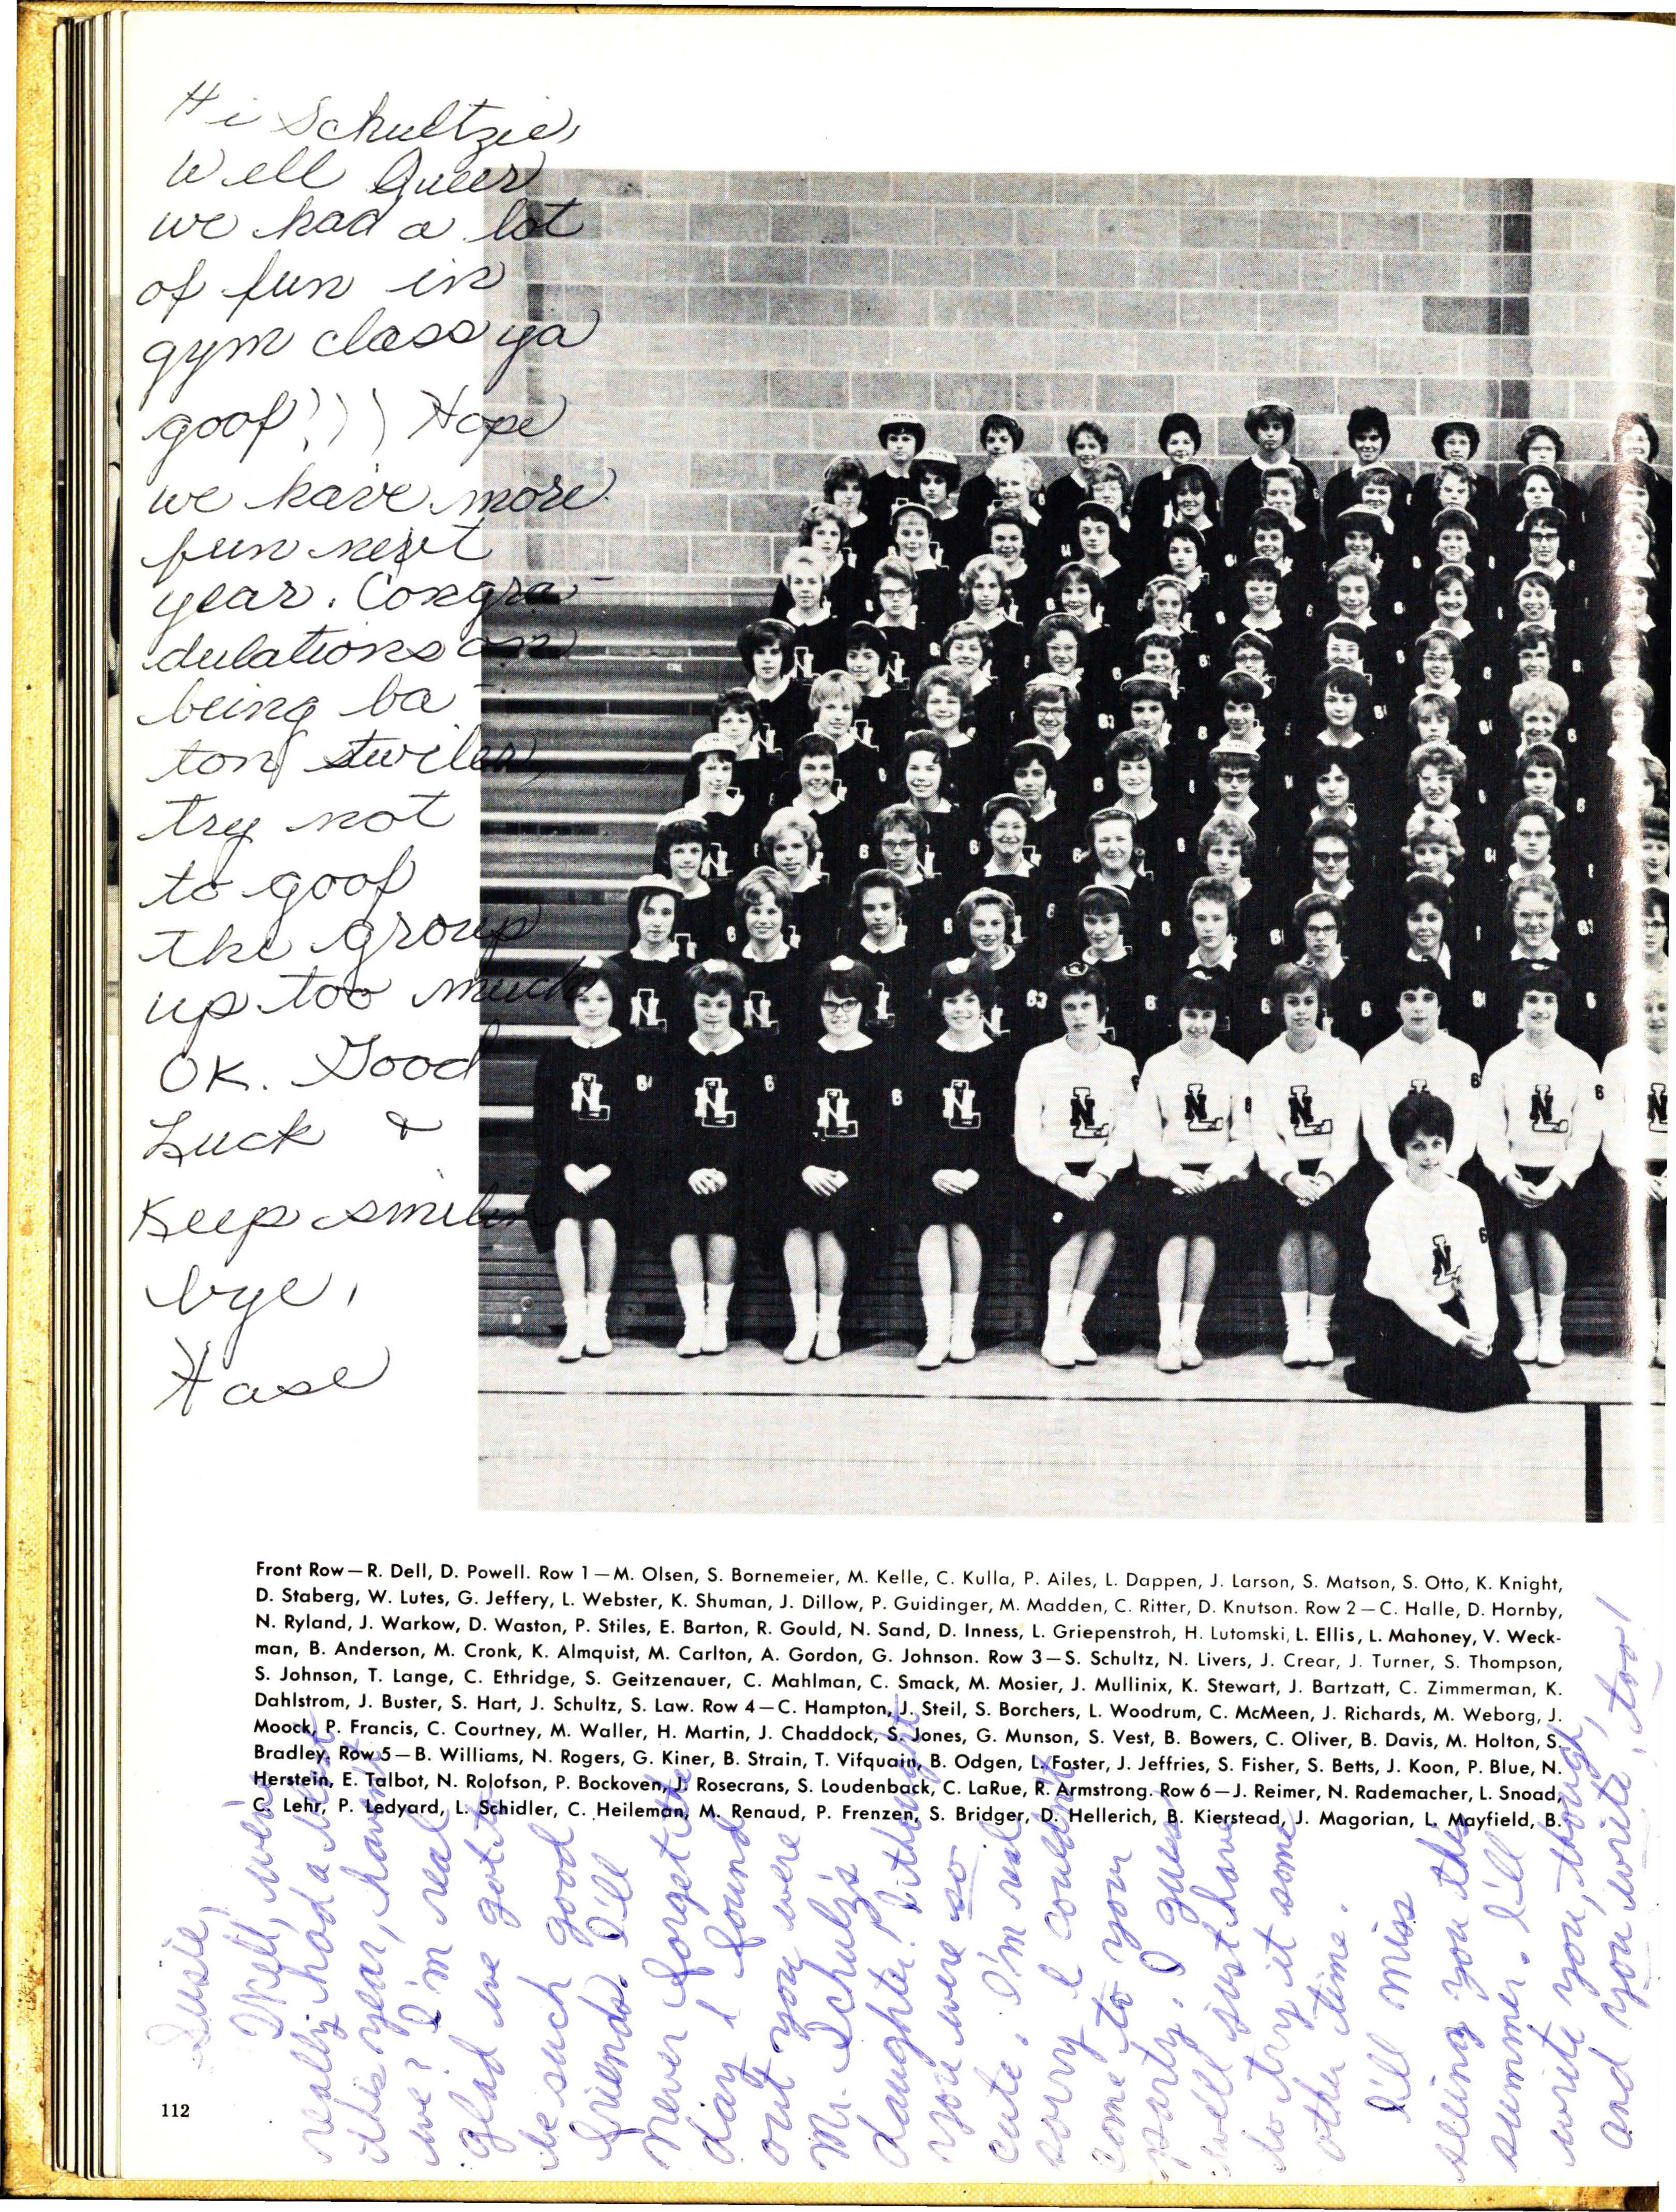 Hi Schultzie,
Well Queer
we had a lot
of fun in
gym class ya
goof!)) Hope
we have more
fun next
year. Congra-
dulations on
being ba-
ton twiler,
try not
to goof
the group
up too much
OK. Good
Luck &
Keep smilin
bye,
Hase
Front Row—R. Dell, D. Powell. Row 1—M. Olsen, S. Bornemeier, M. Kelle, C. Kulla, P. Ailes, L. Dappen, J. Larson, S. Matson, S. Otto, K. Knight,
D. Staberg, W. Lutes, G. Jeffery, L. Webster, K. Shuman, J. Dillow, P. Guidinger, M. Madden, C. Ritter, D. Knutson. Row 2—C. Halle, D. Hornby,
N. Ryland, J. Warkow, D. Waston, P. Stiles, E. Barton, R. Gould, N. Sand, D. Inness, L. Griepenstroh, H. Lutomski, L. Ellis, L. Mahoney, V. Weck-
man, B. Anderson, M. Cronk, K. Almquist, M. Carlton, A. Gordon, G. Johnson. Row 3—S. Schultz, N. Livers, J. Crear, J. Turner, S. Thompson,
S. Johnson, T. Lange, C. Ethridge, S. Geitzenauer, C. Mahlman, C. Smack, M. Mosier, J. Mullinix, K. Stewart, J. Bartzatt, C. Zimmerman, K.
Dahlstrom, J. Buster, S. Hart, J. Schultz, S. Law. Row 4—C. Hampton, J. Steil, S. Borchers, L. Woodrum, C. McMeen, J. Richards, M. Weborg, J.
Moock, P. Francis, C. Courtney, M. Waller, H. Martin, J. Chaddock, S. Jones, G. Munson, S. Vest, B. Bowers, C. Oliver, B. Davis, M. Holton, S.
Bradley. Row 5—B. Williams, N. Rogers, G. Kiner, B. Strain, T. Vifquain, B. Odgen, L. Foster, J. Jeffries, S. Fisher, S. Betts, J. Koon, P. Blue, N.
Herstein, E. Talbot, N. Rolofson, P. Bockoven, J. Rosecrans, S. Loudenback, C. LaRue, R. Armstrong. Row 6—J. Reimer, N. Rademacher, L. Snoad,
C. Lehr, P. Ledyard, L. Schidler, C. Heileman, M. Renaud, P. Frenzen, S. Bridger, D. Hellerich, B. Kierstead, J. Magorian, L. Mayfield, B.
Susie,
Well, we've
really had a blast
this year, haven't
we? I'm real
glad we got to
be such good
friends. I'll
never forget the
day I found
out you were
Mr. Schulz's
daughter! I thought
you were so
cute. I'm real
sorry I couldn't
come to your
party. I guess
we'll just have
to try it some
other time.
I'll miss
seeing you this
summer. I'll
write you, though,
and you write, too!
112